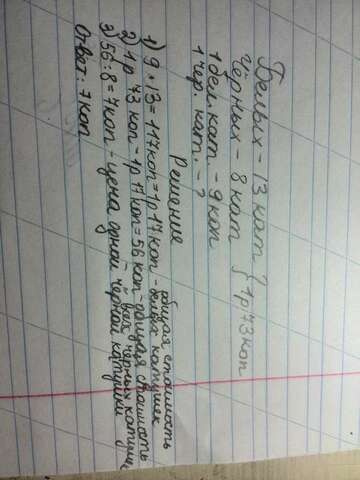 Белых - 13 кат
Чёрных - 8 кат } 1р 73 коп
1 бел. кат - 9 коп
1 чер. кат. - ?
Решение
1) 9 * 13 = 117 коп = 1р 17 коп - общая стоимость белых катушек
2) 1р 73 коп - 1р 17 коп = 56 коп - общая стоимость всех чёрных катушек
3) 56 : 8 = 7 коп - цена одной чёрной катушки
Ответ: 7 коп